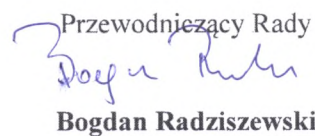 Przewodniczący Rady
Bogdan Radziszewski